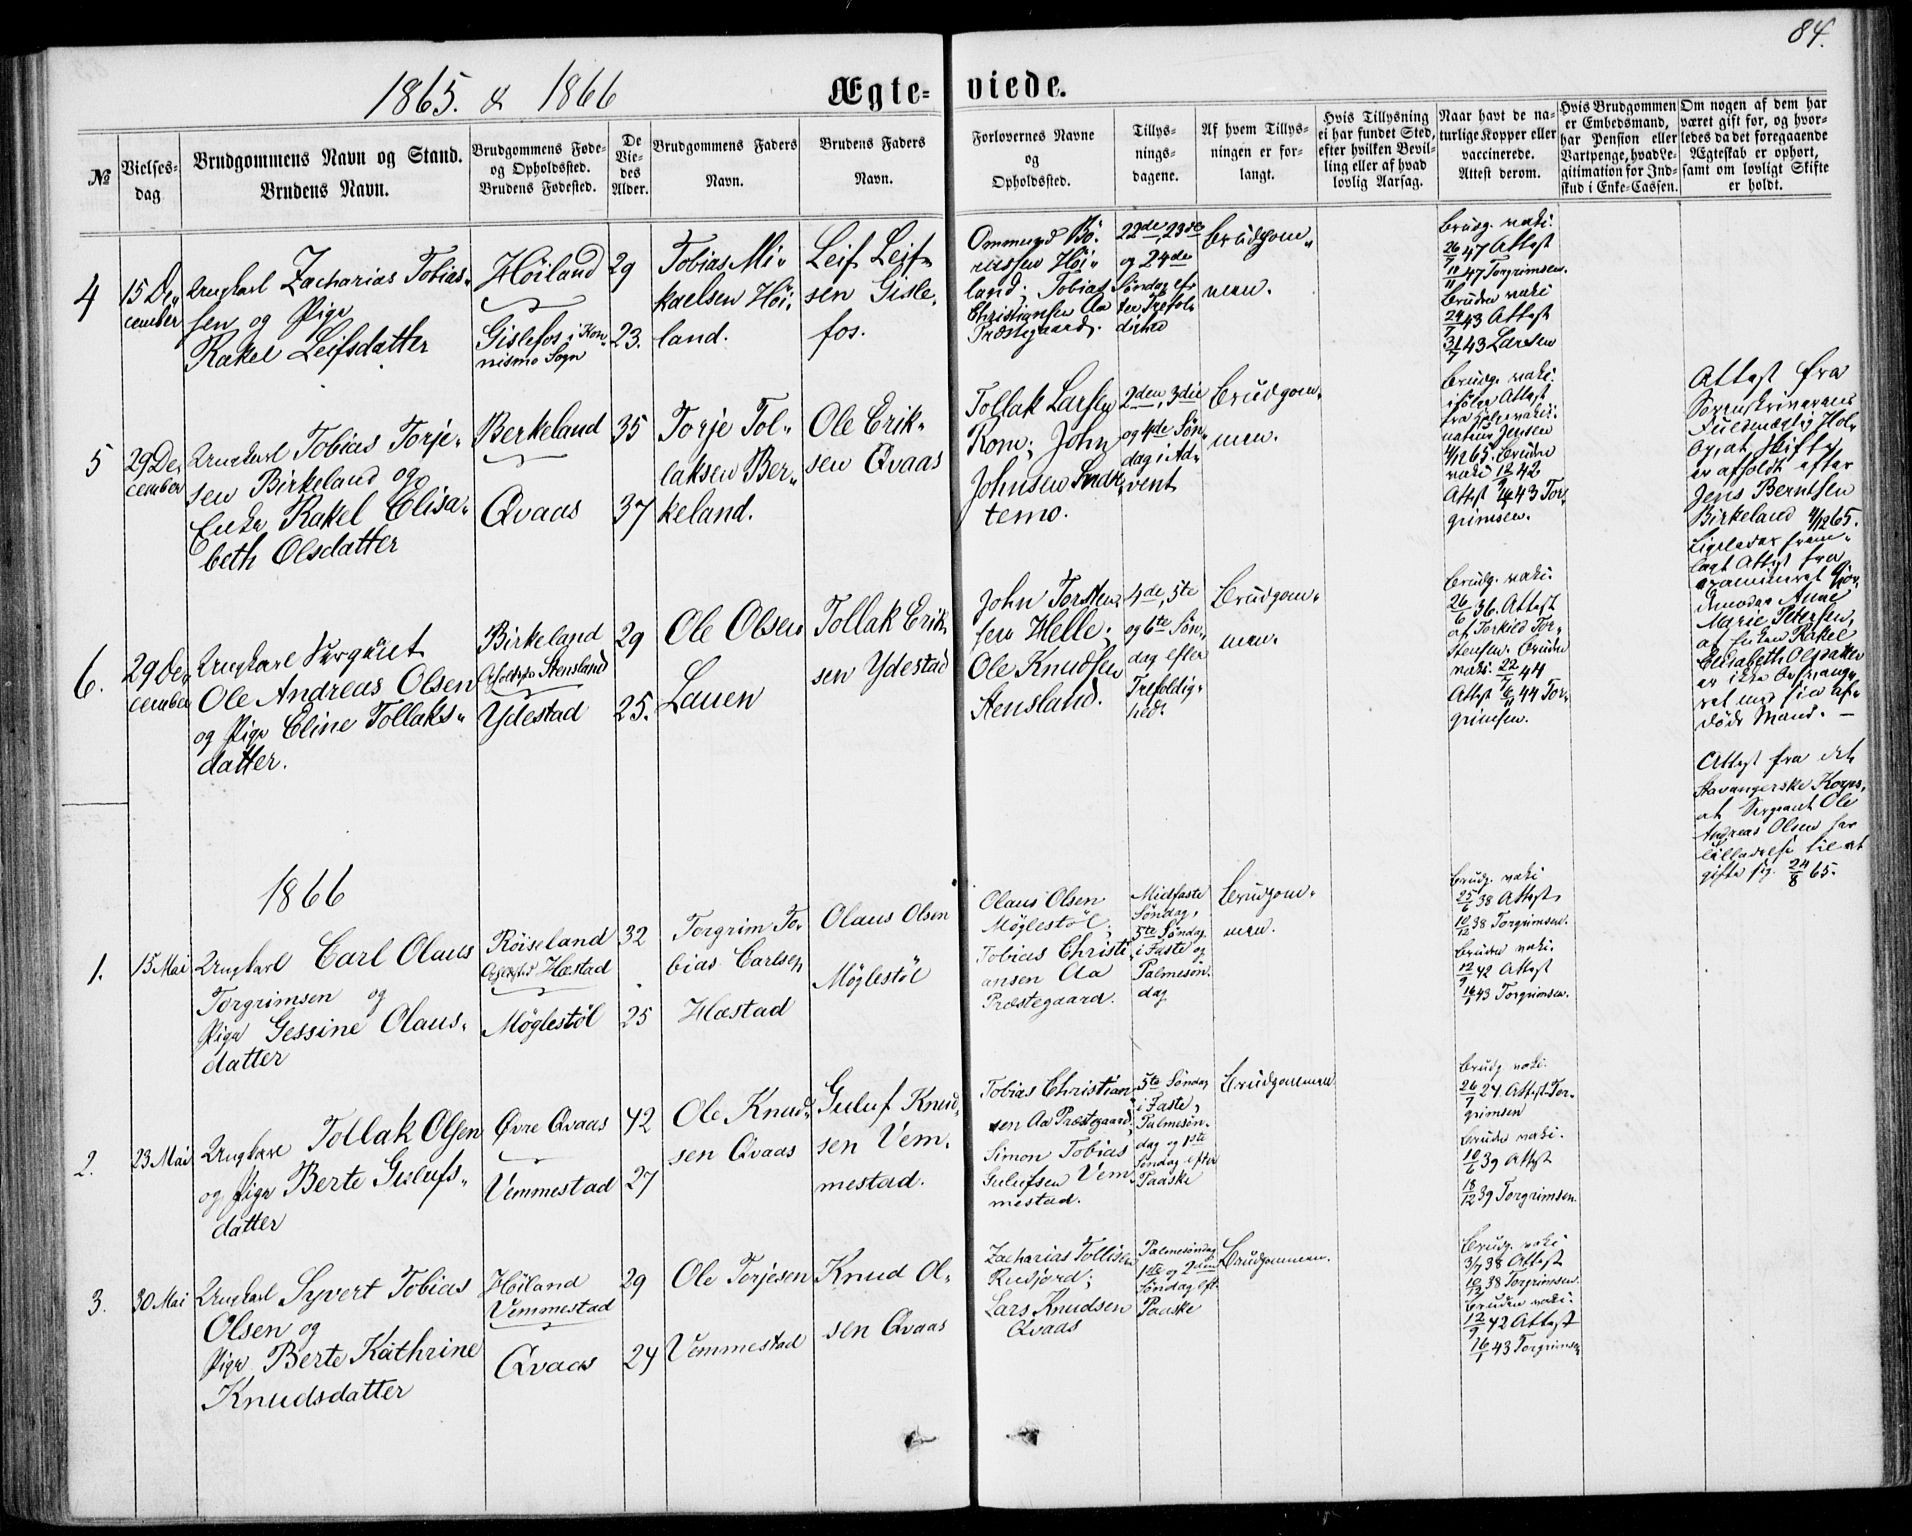 84.
1865. & 1866
Ægte- viede.
№
Vielses-
dag
Brudgommens Navn og Stand.
Brudens Navn.
Brudgommens Føde-
og Opholdssted.
Brudens Fødested.
De
Vie-
des
Alder.
Brudgommens Faders
Navn.
Brudens Faders
Navn.
Forlovernes Navne
og
Opholdssted.
Tillys-
nings-
dagene.
Af hvem Tillys-
ningen er for-
langt.
Hvis Tillysning
ei har fundet Sted,
efter hvilken Bevil-
ling eller af hvad
lovlig Aarsag.
Naar havt de na-
turlige Kopper eller
vaccinerede.
Attest derom.
Hvis Brudgommen
er Embedsmand,
har Pension eller
Vartpenge, hvad Le-
gitimation for Ind-
skud i Enke-Cassen.
Om nogen af dem har
været gift før, og hvor-
ledes da det foregaaende
Ægteskab er ophørt,
samt om lovligt Skifte
er holdt.
4
15 De-
cember
Ungkarl Zacharias Tobias-
sen og Pige
Rakel Leifsdatter
Höiland
Gislefos i Kon-
nismo Sogn
29
23.
Tobias Mi-
kaelsen Höi-
land.
Leif Leif-
sen Gisle-
fos.
Ommund Bö-
Höi-
land; Tobias
Christiansen Aa
Præstegaard.
22de, 23de
og 24de
Søndag ef-
ter Trefol-
dighed
Brudgom-
men.
Brudg. vaki.
26/7 47 Attest
47 Torgrimsen.
Bruden vaki
43 Attest
43 Larsen
5
29 De-
cember
Ungkarl Tobias Torje-
sen Birkeland og
Enke Rakel Elisa-
beth Olsdatter
Berkeland
Qvaas
35
37
Torje Tol-
laksen Ber-
keland.
Ole Erik-
sen Qvaas
Tollak Larsen
Rom; John
Johnsen Indr-
temo.
2den, 3die
og 4de Søn-
dag i Ad-
vent
Brudgom-
men.
Brudg. vaki.
ifølge Attest
fra Hjelpevakci-
natør Jensen
4/12 65. Bruden
vaki 42
Attest 43 Tor-
grimsen.
Attest fra
Sorenskriverens
Fuldmægtig Hol-
at Skifte
er afholdt efter
Jens Berntsen
Birkeland 4/12 65.
Ligeledes frem-
lagt Attest fra
examineret Gjor-
demoder Anne
Marie Petersen,
at Enken Rakel
Elisabeth Olsdatter
er ikke besvang-
ret med sin af-
døde Mand. —
6.
29 De-
cember
Ungkarl Sergeant
Ole Andreas Olsen
og Pige Eline Tollaks-
datter.
Birkeland
Opholdss. Stensland
Ydestad
29
25.
Ole Olsen
Lauen
Tollak Erik-
sen Ydestad
John Torsten-
sen Helle;
Ole Knudsen
Stensland.
4de, 5te
og 6te Søn-
dag efter
Trefoldig-
hed.
Brudgom-
men.
Brudg. vaki.
26/6 36. Attest
af Torkild Tor-
stensen. Bruden
vaki. 22/7 44
Attest 44 Tor-
grimsen.
Attest fra det
Stavangerske Korps,
at Sergeant Ole
Andreas Olsen har
tilladelse til at
gifte sig. 24/8 65.
1866
1.
15 Mai
Ungkarl Carl Olaus
Torgrimsen og
Pige Gessine Olaus-
datter
Röiseland
Opholdssted Hæstad
Möglestöl
32
25
Torgrim To-
bias Carlsen
Hæstad
Olaus Olsen
Möglestöl
Olaus Olsen
Möglestöl;
Tobias Christi-
ansen Aa
Præstegaard.
Midfaste
Søndag,
5te Søndag
i Faste og
Palmesøn-
dag
Brudgom-
men.
Brudg. vaki
25/6 38 Attest
10/12 38 Torgrimsen.
Bruden vaki.
12/9 42 Attest
16/1 43 Torgrimsen.
2.
23 Mai
Ungkarl Tollak Olsen
og Pige Berte Gulufs-
datter
Øvre Qvaas
Vemmestad
42
27
Ole Knud-
sen Qvaas
Guluf Knud-
sen Vem-
mestad.
Tobias Christian-
sen Aa Præstegaard,
Simon Tobias
Gulufsen Vem-
mestad.
5te Søndag
i Faste,
Palmesøn-
dag og 1ste
Søndag efter
Paaske
Brudgommen
Brudg vaki.
26/7 24 Attest Tor-
grimsen
Bruden vaki.
10/6 39 Attest
18/12 39 Torgrimsen.
3.
30 Mai
Ungkarl Syvert Tobias
Olsen og
Pige Berte Kathrine
Knudsdatter
Höiland
Vemmestad
Qvaas
29
24
Ole Torjesen
Vemmestad
Knud Ol-
sen Qvaas
Zacharias Tollisen
Rudjord;
Lars Knudsen
Qvaas
Palmesøndag
1ste og 2den
Søndag eft.
Paaske
Brudgommen.
Brudg. vaki
3/7 38 Attest
10/12 38 Torgrimsen.
Bruden vaki.
12/9 42 Attest
16/1 43 Torgrimsen